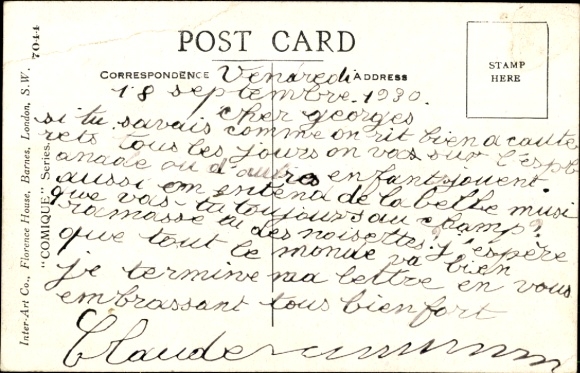 POST CARD
CORRESPONDENCE
ADDRESS
STAMP
HERE
Inter-Art Co., Florence House, Barnes, London, S.W.
"COMIQUE" Series.
7044
Vendredi
18 septembre. 1930.
cher georges
si tu savais comme on rit bien a caute
rets tous les jours on vas sur l'espl
anade ou d'autres enfants jouent
aussi em entend de la belle musi
que vas-tu toujours au champs?
ramasse tu des noisettes. j'espère
que tout le monde va bien
je termine ma lettre en vous
embrassant tous bien fort
Claude